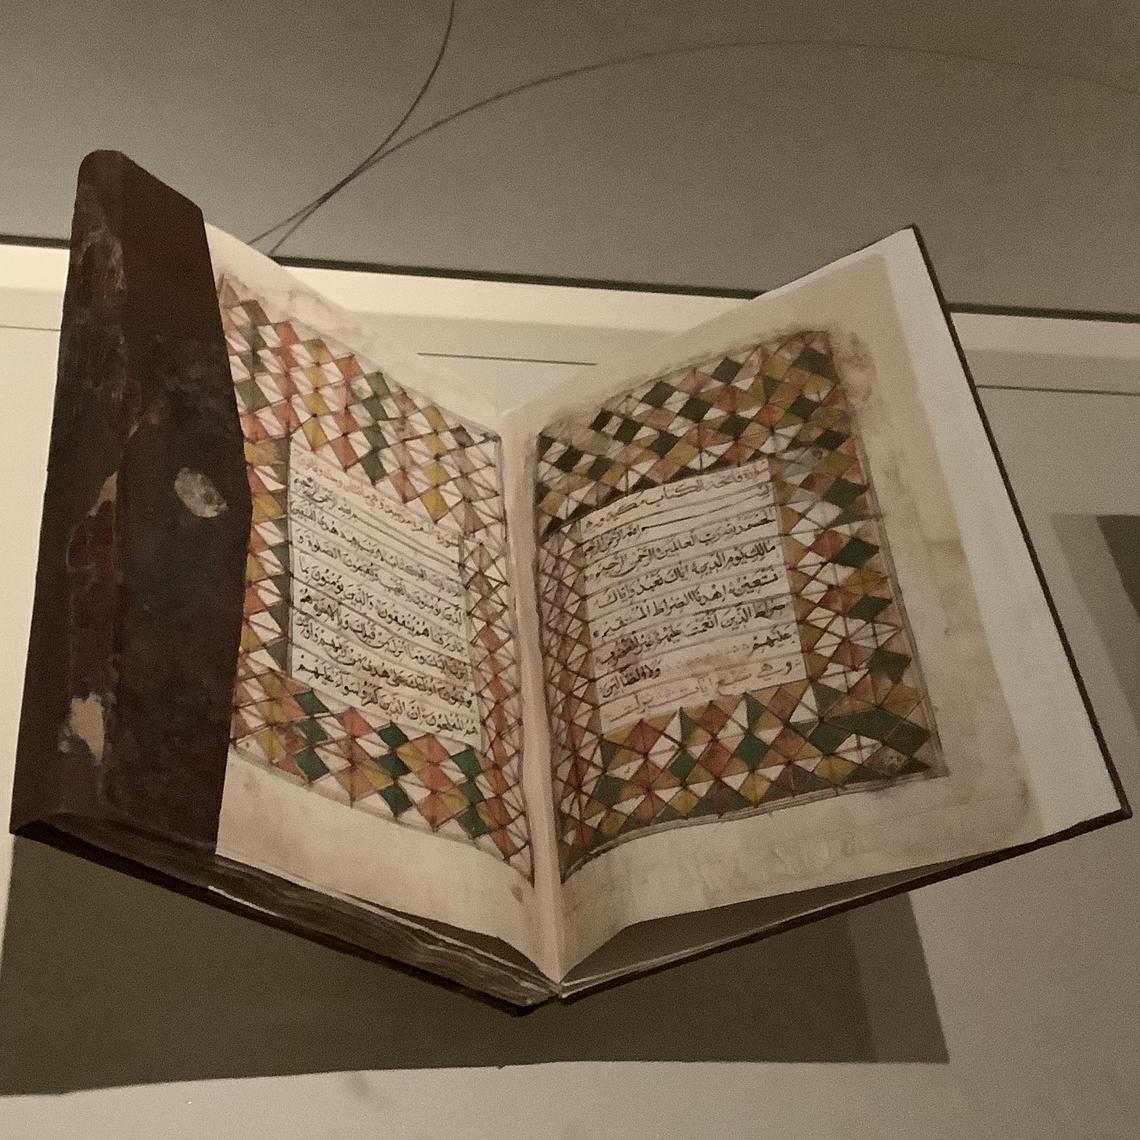 سورة فاتحة الكتاب مكية وهي
بسم الله الرحمن الرحيم
الحمد لله رب العالمين الرحمن الرحيم
مالك يوم الدين إياك نعبد وإياك
نستعين اهدنا الصراط المستقيم
صراط الذين أنعمت عليهم غير المغضوب
عليهم ولا الضالين
وهي سبع آيات
سورة
بسم الله الرحمن الرحيم
ذلك الكتاب لا ريب فيه هدى للمتقين
الذين يؤمنون بالغيب ويقيمون الصلوة و
مما رزقناهم ينفقون والذين يؤمنون بما
أنزل إليك وما أنزل من قبلك وبالآخرة هم
يوقنون أولئك على هدى من ربهم وأولئك
هم المفلحون إن الذين كفروا سواء عليهم